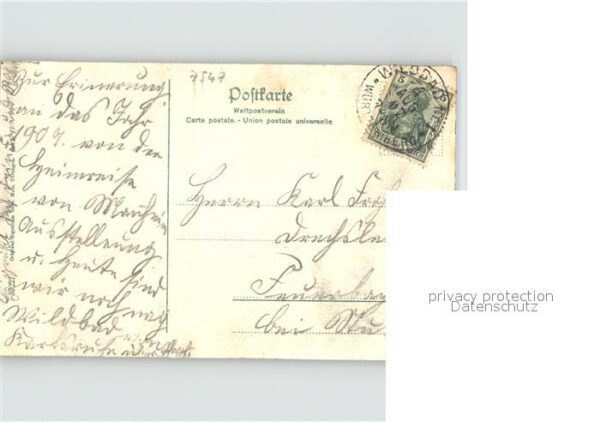 7567
Postkarte
Weltpostverein
Carte postale. - Union postale universelle
WILDBAD
Zur Erinerung
an das Jahr
1907. von der
Heimreise
von Manheim
Ausstelleung
u. heute sind
wir noch nag
Wildbad
Karlsruhe
Herrn Karl
Drechsle
Feuerba
bei Stu
privacy protection
Datenschutz